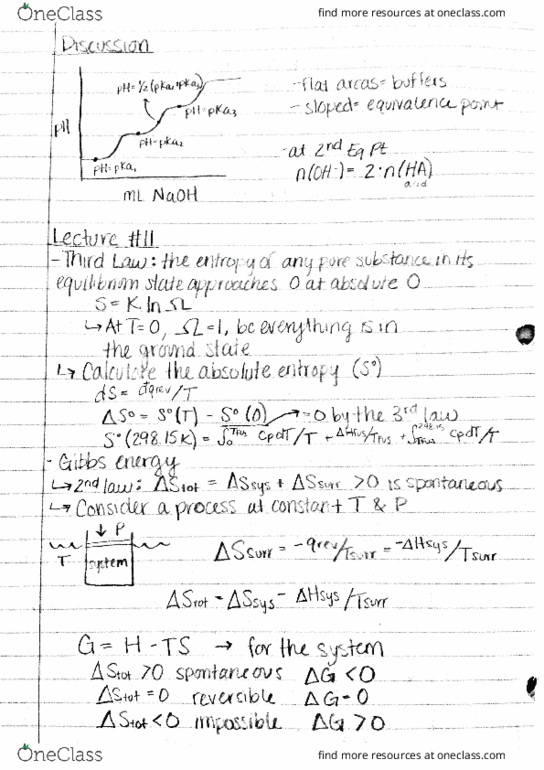 OneClass
find more resources at oneclass.com
Discussion
pH=½(pKa₁+pKa₂)
pH=pKa₃
pH=pKa₂
pH=pKa₁
pH
mL NaOH
-flat areas= buffers
- sloped= equivalence point
-at 2nd Eq Pt
n(OH-)= 2·n(HA)
acid
Lecture #11
-Third Law: the entropy of any pure substance in its
equilibrium state approaches 0 at absolute 0
S=K ln Ω
↳At T=0, Ω=1, bc everything is in
the ground state
↳ Calculate the absolute entropy (S°)
dS= đqrev/T
ΔS°= S°(T) - S°(0) →=0 by the 3rd law
S°(298.15K) = ∫₀^Tfus CpdT/T + ΔHfus/Tfus + ∫Tfus^298.15 CpdT/T
- Gibbs energy
↳2nd law: ΔStot = ΔSsys + ΔSsurr >0 is spontaneous
↳ Consider a process at constant T & P
↓ P
T
system
ΔSsurr = -qrev/Tsurr = -ΔHsys/Tsurr
ΔStot = ΔSsys - ΔHsys/Tsurr
G = H - TS → for the system
ΔStot >0 spontaneous ΔG <0
ΔStot =0 reversible ΔG=0
ΔStot <0 impossible ΔG >0
OneClass
find more resources at oneclass.com